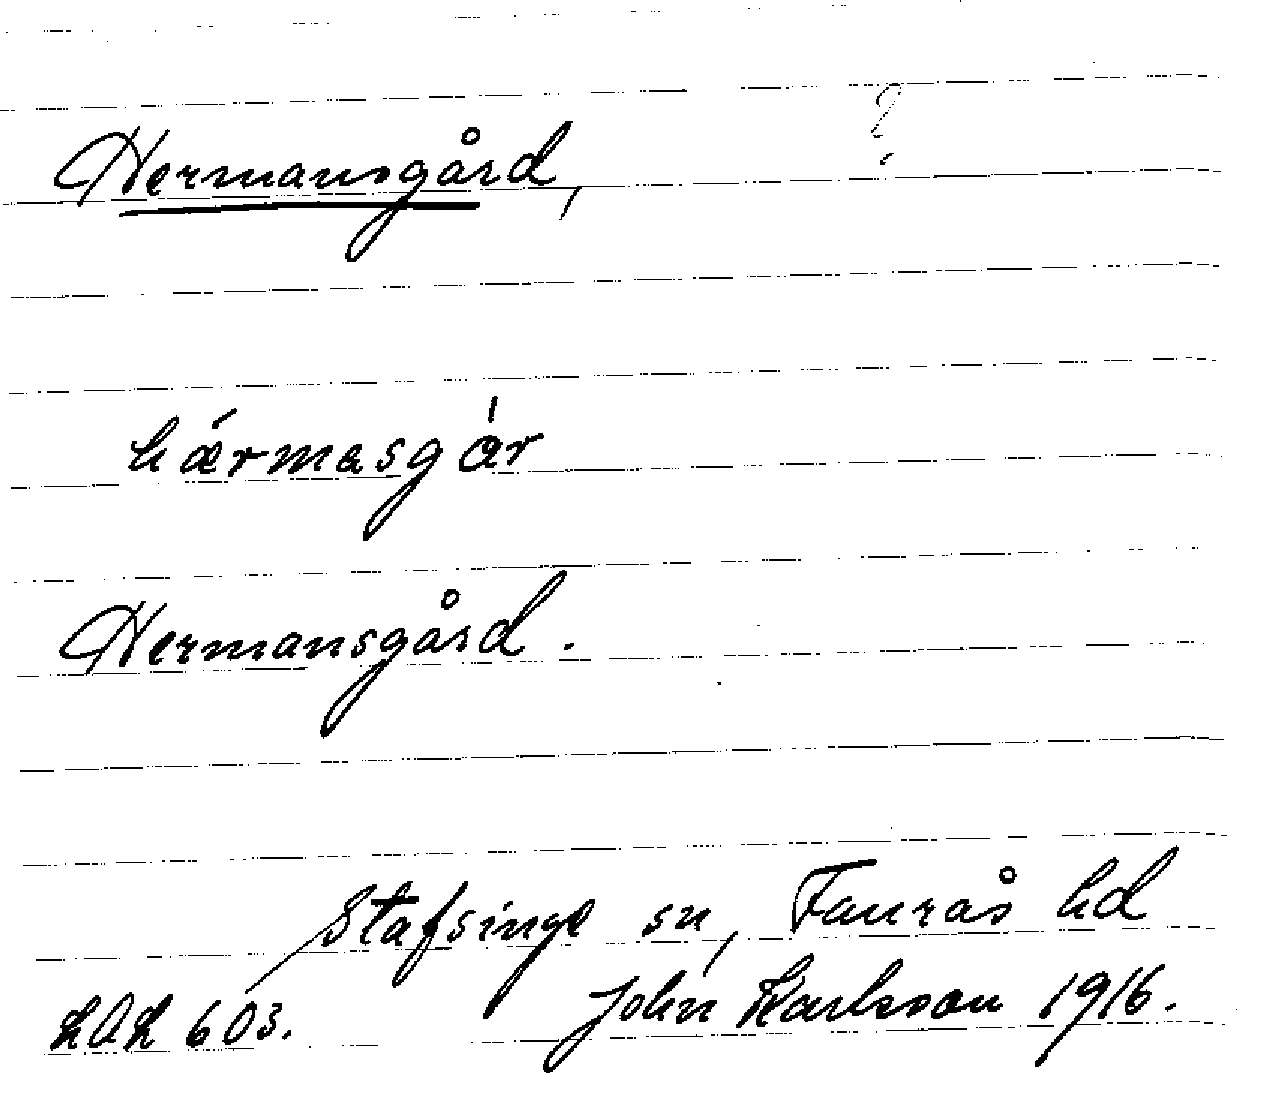 Hermansgård, ?
hǽrmasgár
Hermansgård.
Stafsinge sn, Faurås hd
John Karlsson 1916.